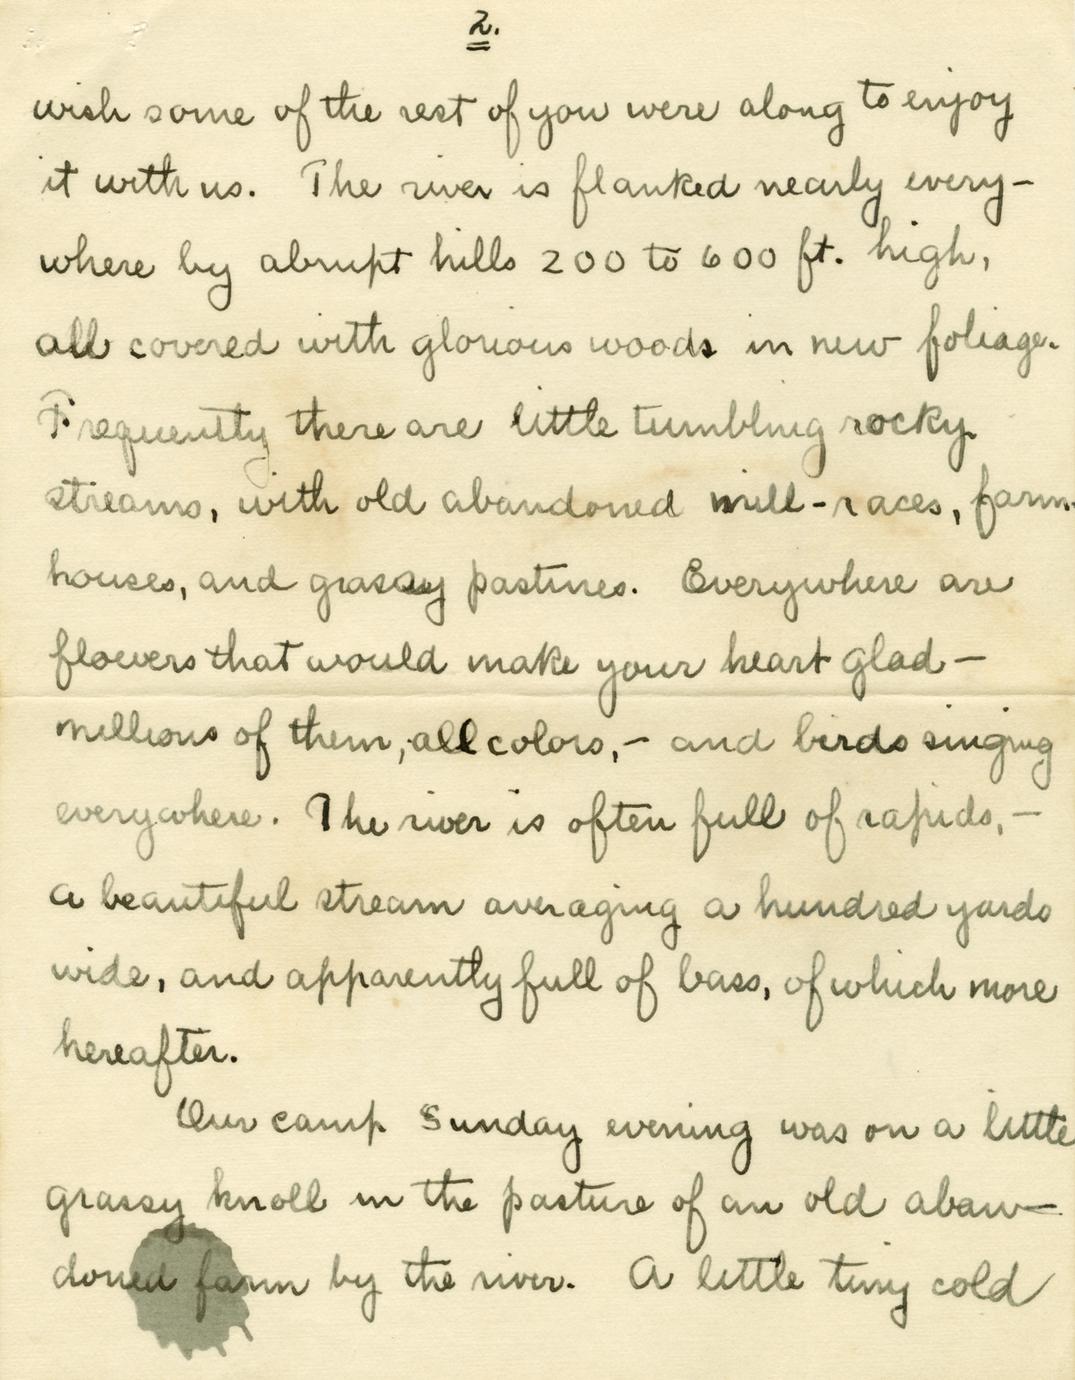 2.
wish some of the rest of you were along to enjoy
it with us. The river is flanked nearly every-
where by abrupt hills 200 to 600 ft. high,
all covered with glorious woods in new foliage.
Frequently there are little tumbling rocky
streams, with old abandoned mill-races, farm-
houses, and grassy pastures. Everywhere are
flowers that would make your heart glad —
millions of them, all colors, - and birds singing
everywhere. The river is often full of rapids, —
a beautiful stream averaging a hundred yards
wide, and apparently full of bass, of which more
hereafter.
Our camp Sunday evening was on a little
grassy knoll in the pasture of an old aban-
doned farm by the river. A little tiny cold